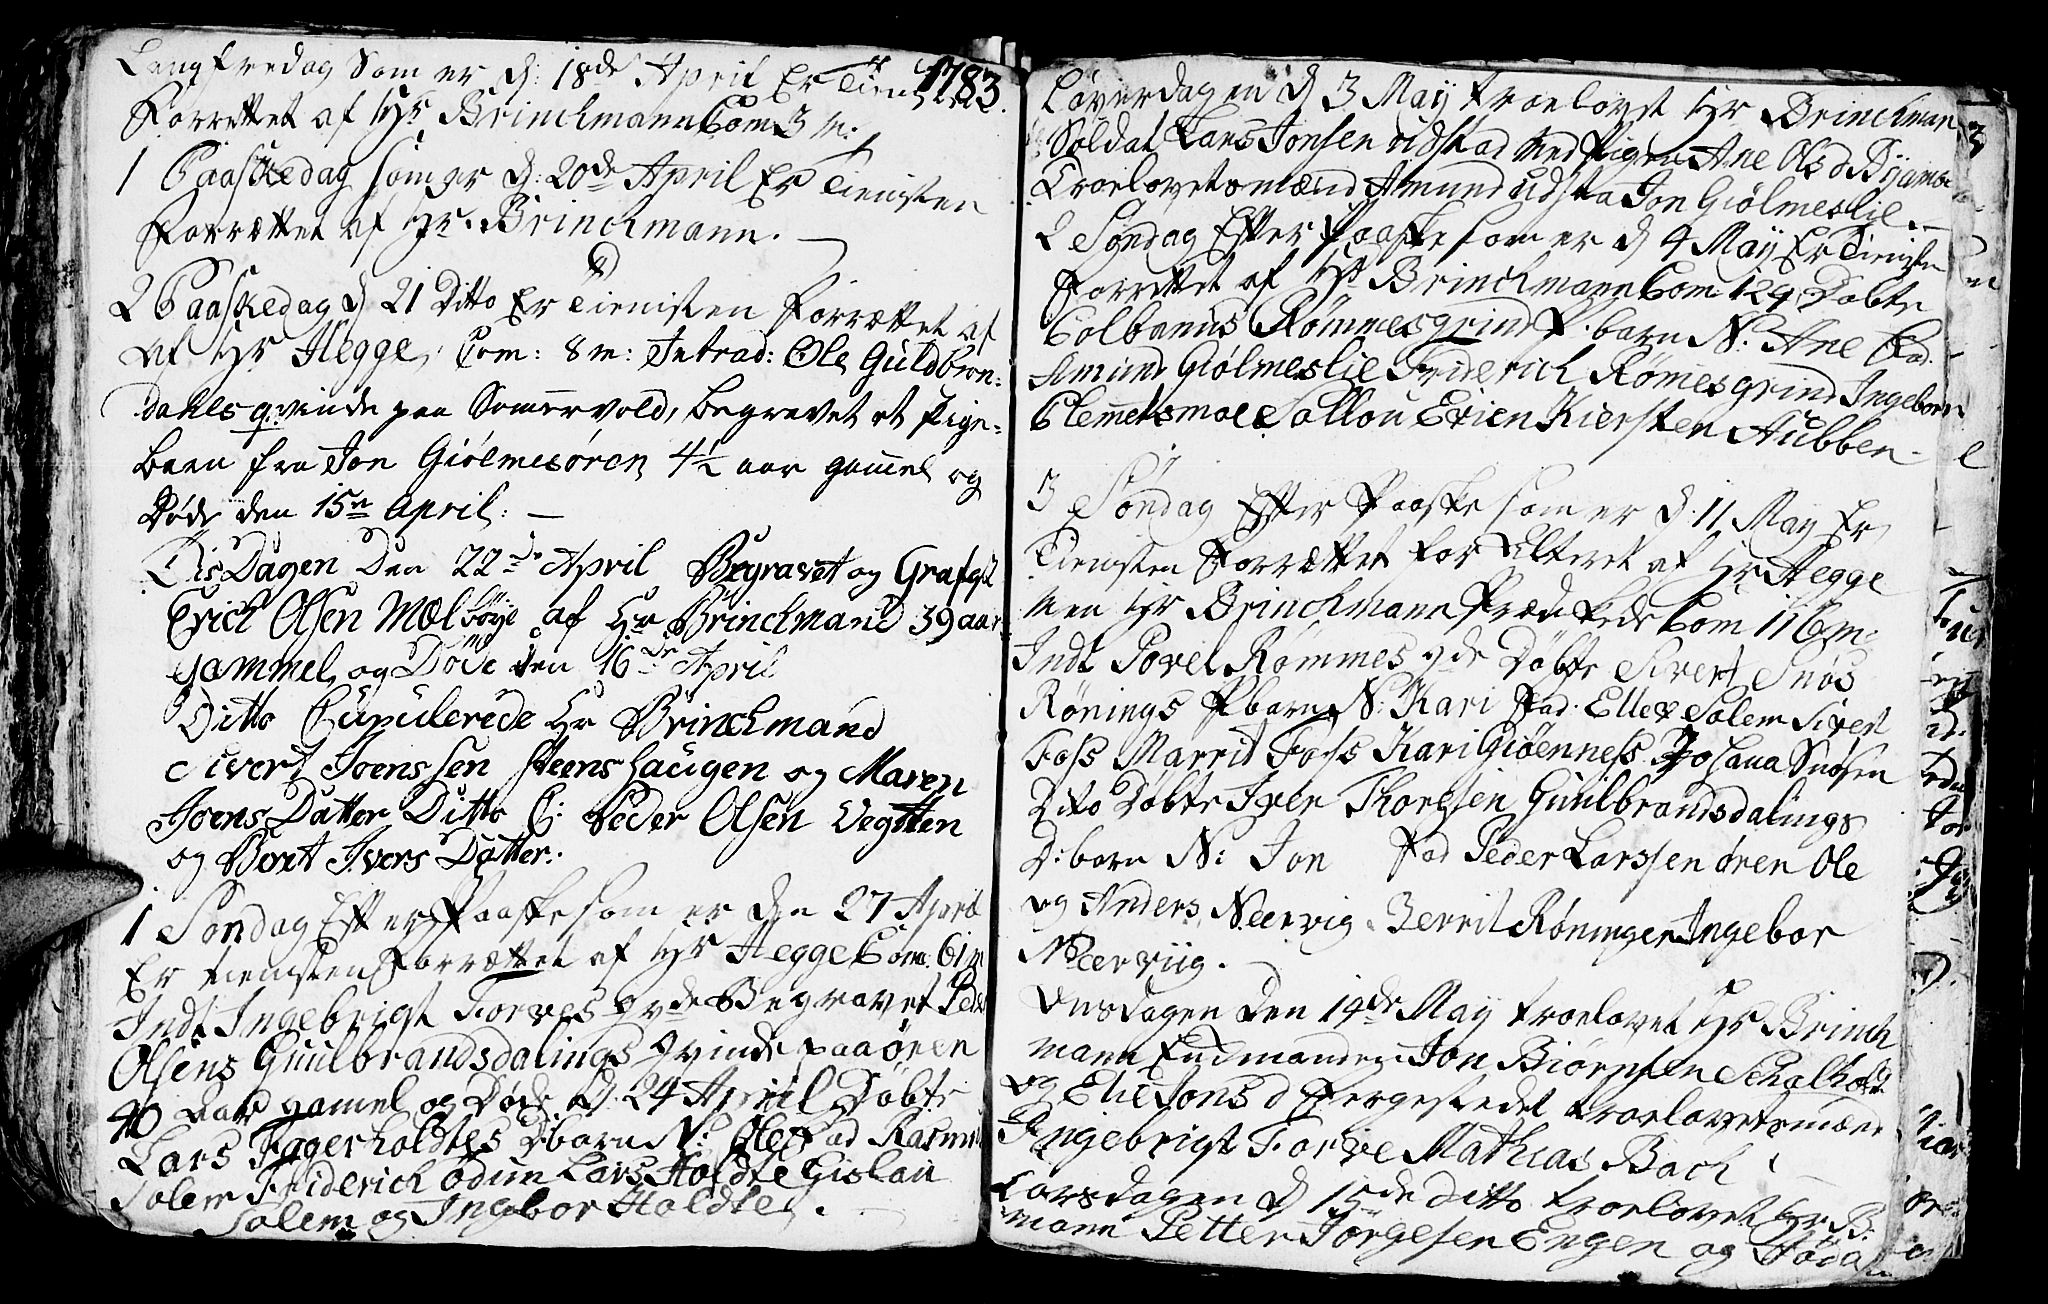 Langfredag Som er d: 18de April Er Tienst
1783.
Forrettet af Hr Brinchmann Com 3 m:
1 Paaskedag som er d: 20de April Er Tiensten
Forrættet af Hr. Brinchmann.
2 Paaskedag d 21 Ditto Er Tienisten Forrættet af
af Hr Hegge, Com: 8 m: Introd: Ole Guldbran-
dahls qvinde paa Somervold, begravet et Pige-
baen fra Jon Giølmesøren 4½ aar gammel og
Døde den 15n April.
Tis Dagen Den 22de April Begravet og Grafest
Erich Olsen Mæl bøye af Hr Brinckmand 39 aar
gammel, og Døde den 16de April
Ditto Cupulerede Hr Brinckmand
Sivert Joenssen Steenshaugen og Maren
Joens Datter Ditto C: Peder Olsen Vegtten
og Beret Ivers Datter.
1 Søndag Efter Paaske som er den 27 April
Er tiensten Forrættet af Hr Hegge Com: 61 m
Indl Ingebrigt Forves qvde Begravet Peder
Olsens Guulbrandsdalings qvinde paa øren
40 aar gamel og Døde d. 24 April Døbte
Lars Fagerholdtes Dbarn N: Ole Fad Rasmus
Solem Friderich odum Lars Holdte Gislau
Solem og Ingebor Holdte.
Løverdagen d 3 May troelovet Hr Brinchman
Soldat Lars Jonsen udstad med Pigen Ane Ols d
Troelovetsmænd Amund udsta Jon Giølmeslie
2 Søndag Efter Paaske som er d 4 May Er Tiensten
Forrettet af Hr Brinchmann Com 129 Døbte
Colbanus Rømmesgrind P. barn N: Ane Fad.
Amund Giølmeslie Friderich Rømesgrind Ingebor
Clemetsmoe Sollou Erien Kiersten Aubben
3 Søndag Efter Paaske som er d. 11 May Er
Tiensten Forrættet for Alteret af Hr Hegge
men Hr Brinchmann Prædikede Com 116 m:
Indl Povel Rømmes qde Døbte Sivert Snøs
Rønings Pbarn N: Kari Fad. Ellef Solem Sivert
Foss Marrit Foss Kari Giøenness Johana Snøsen
Dito Døbte Iver Thoresen Guulbrandsdalings
D: barn N: Jon Fad Peder Larssen øren Ole
og Anders Neervig Berrit Røningen Ingebor
Neerviig.
Onsdagen Den 14de May troelovet Hr Brinch
mann Enchmanden Jon Biørnsen Schalholt
og Elie Jons d Fergestedet troelovetsmænd
Ingebrigt Forve Mathias Bach
Torsdagen d 15de ditto troelovet Hr B:
mann Petter Jørgesen Engen og